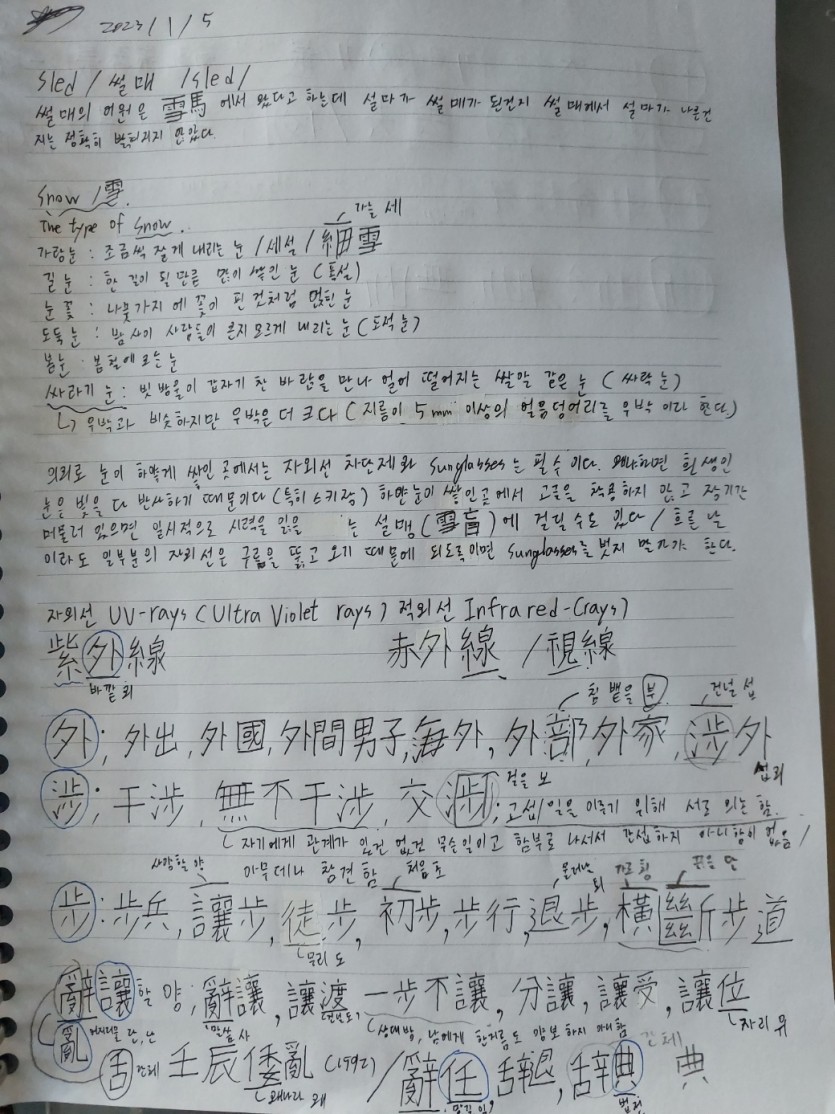 2023/1/5
sled / 썰매 /sled/
썰매의 어원은 雪馬에서 왔다고 하는데 설마가 썰매가 된건지 썰매에서 설마가 나온건
지는 정확히 밝혀지지 않았다.
Snow /雪.
The type of snow.
가는 세
가랑눈 : 조금씩 잘게 내리는 눈 /세설/ 細雪
길눈 : 한 길이 될 만큼 많이 쌓인 눈
눈꽃 : 나뭇가지에 꽃이 핀 것처럼 얹힌 눈
도둑눈 : 밤 사이 사람들이 모르게 내리는 눈 (도적눈)
봄눈 : 봄철에 오는 눈
싸라기눈 : 빗방울이 갑자기 찬 바람을 만나 얼어 떨어지는 쌀알 같은 눈 (싸락눈)
↳ 우박과 비슷하지만 우박은 더 크다 (지름이 5mm 이상의 얼음덩어리를 우박이라 한다.)
의외로 눈이 하얗게 쌓인 곳에서는 자외선 차단제와 Sunglasses는 필수이다. 왜냐하면 흰색인
눈은 빛을 다 반사하기 때문이다 (특히 스키장) 하얀눈이 쌓인곳에서 고글을 착용하지 않고 장기간
머물러 있으면 일시적으로 시력을 잃을 는 설맹(雪盲)에 걸릴 수도 있다 / 흐린 날
이라도 일부분의 자외선은 구름을 뚫고 오기 때문에 되도록이면 sunglasses를 벗지 말라고 한다.
자외선 UV-rays (Ultra Violet rays) 적외선 Infrared-(rays)
紫外線 赤外線 /視線
바깥 외
침 뱉을 부 건널 섭
外; 外出, 外國, 外間男子, 海外, 外部, 外家, 涉外
섭외
걸을 보
涉; 干涉, 無不干涉, 交涉; 교섭/일을 이루기 위해 서로 의논함.
↳ 자기에게 관계가 있건 없건 무슨일이고 함부로 나서서 간섭하지 아니함이 없음/
아무데나 참견함
사양할 양 처음 초 물러날 퇴 가로 횡 끊을 단
步: 步兵, 讓步, 徒步, 初步, 步行, 退步, 橫斷步道
무리 도
辭讓할 양; 辭讓, 讓渡, 一步不讓, 分讓, 讓受, 讓位
亂 어지러울 란, 난 말씀 사 상대방, 남에게 한걸음도 양보하지 아니함 자리 위
舌 간체 壬辰倭亂 (1592) / 辭任 辞退, 辞典 典
간체
왜나라 왜 맡길 임 법전